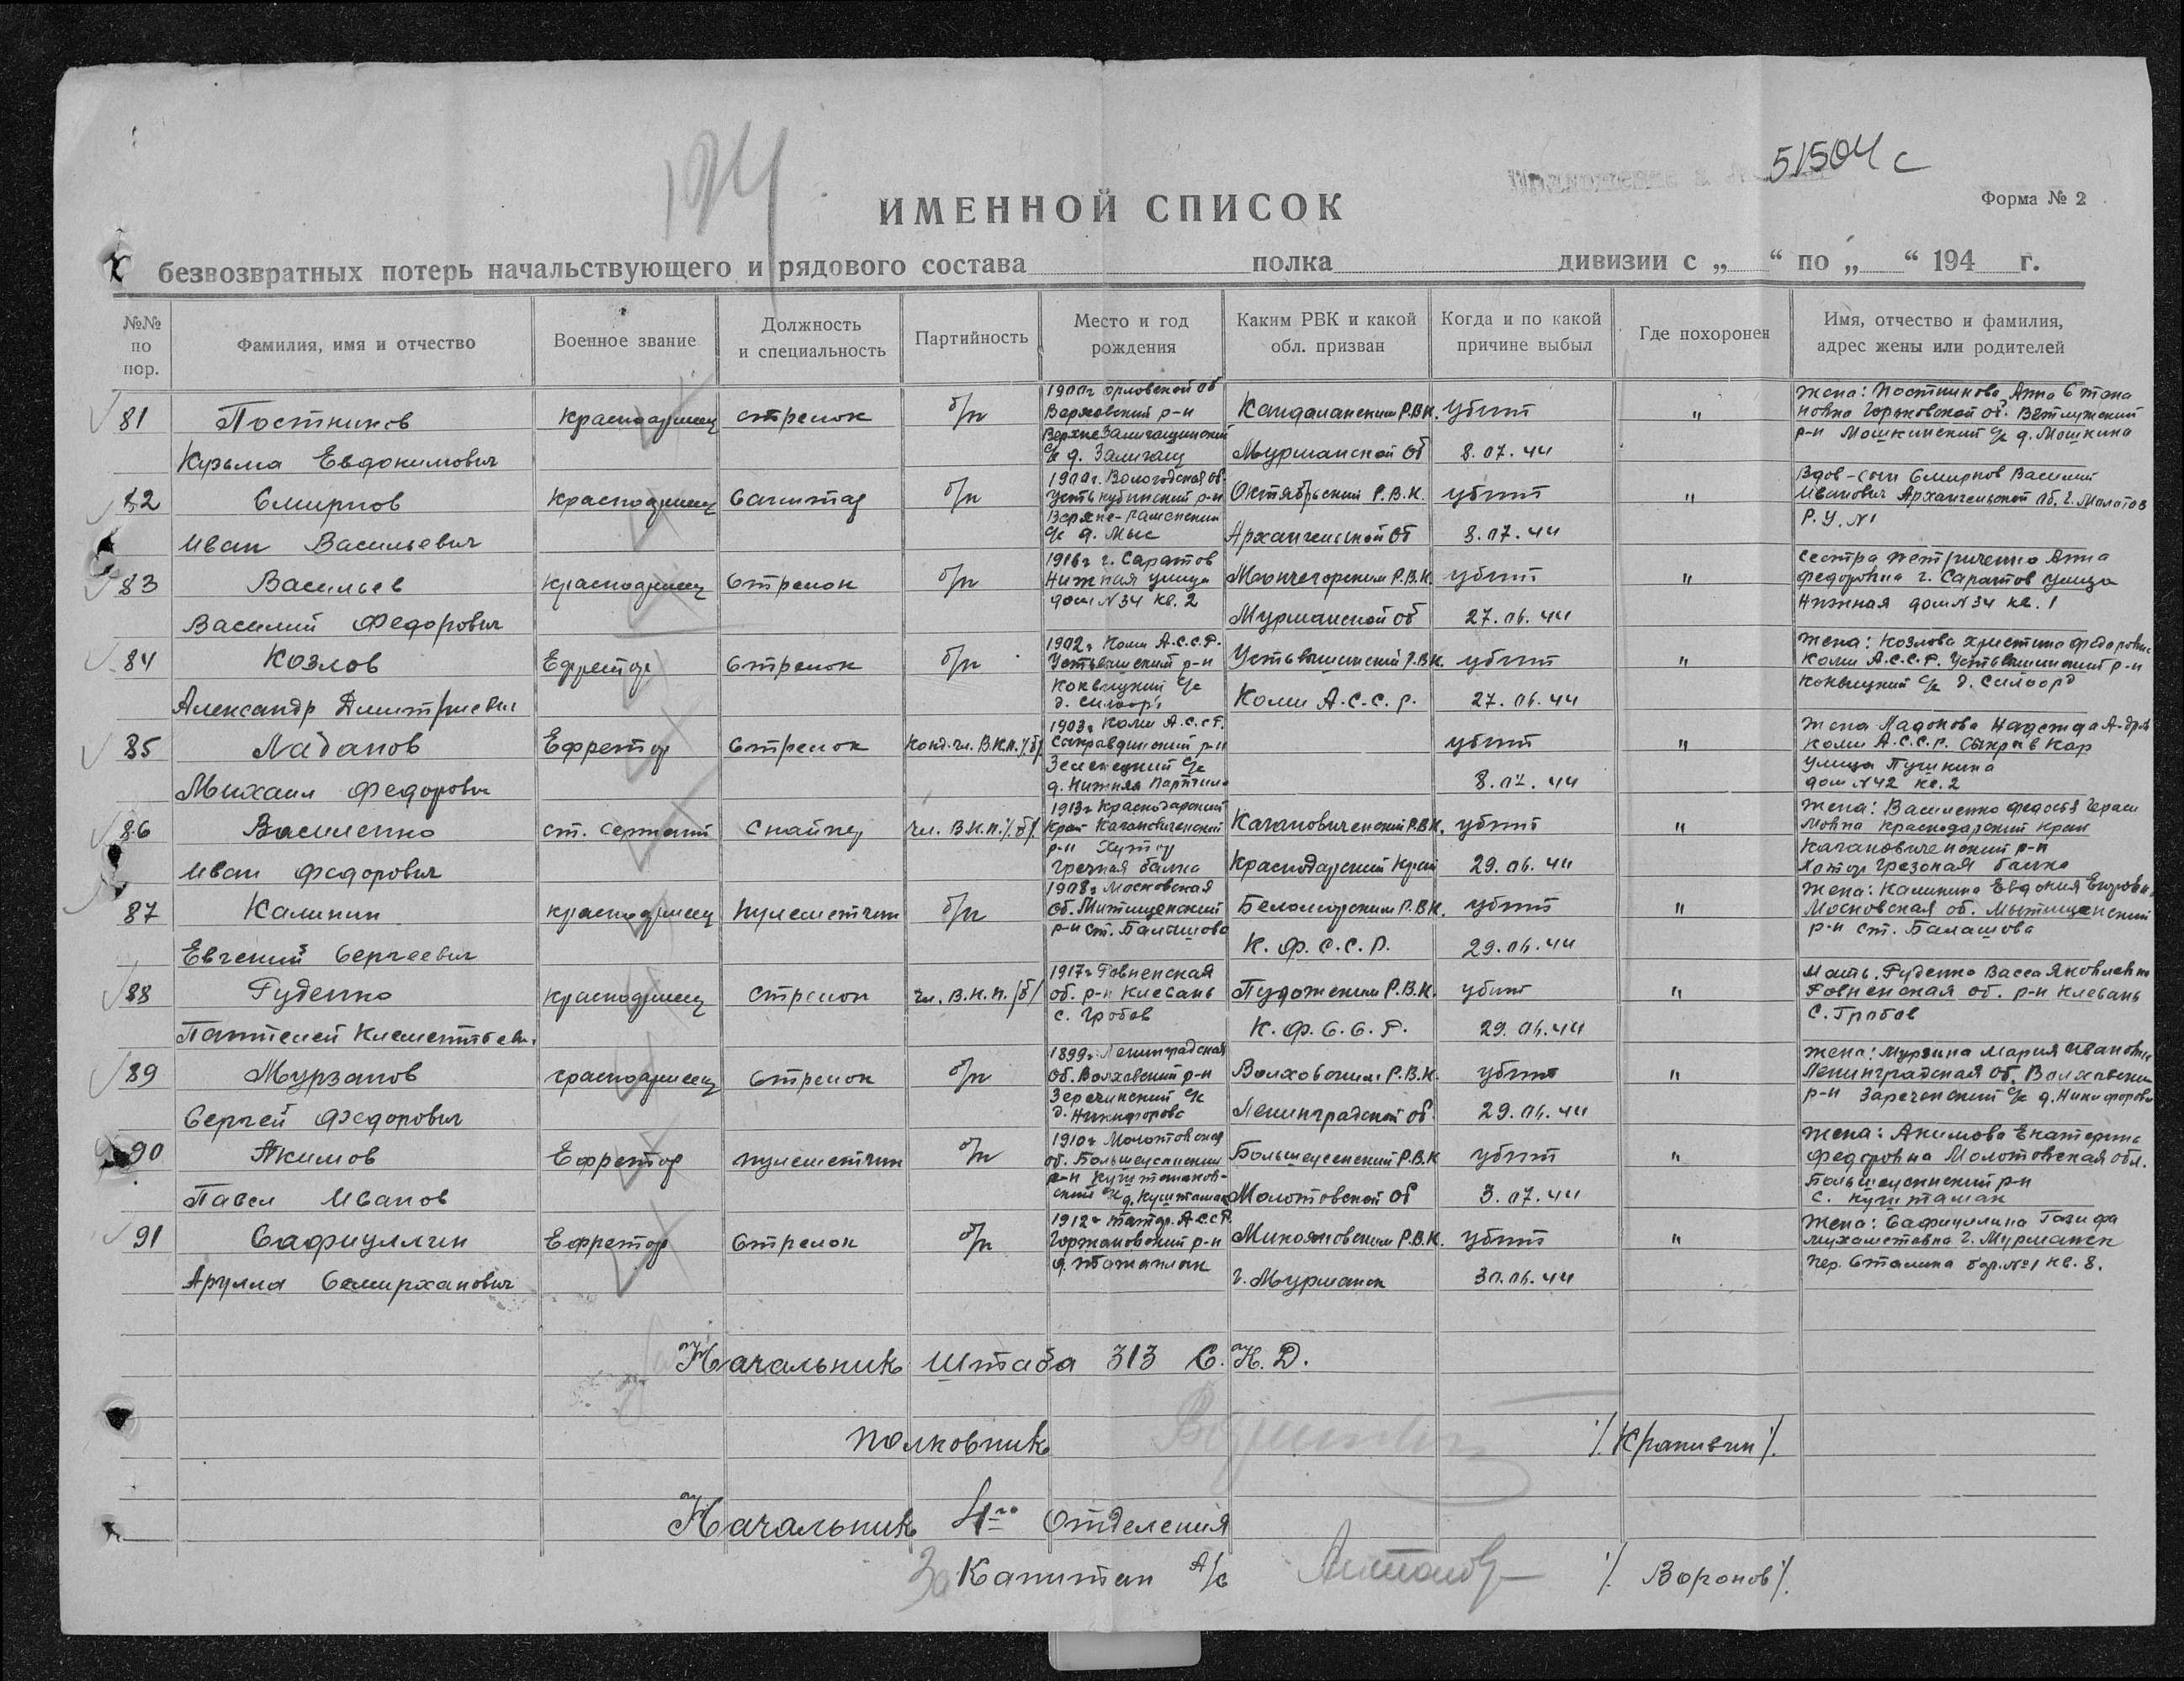 194
51504 с
Форма № 2
ИМЕННОЙ СПИСОК
безвозвратных потерь начальствующего и рядового состава полка дивизии с „ “ по „ “ 194 г.
№№ по пор.
Фамилия, имя и отчество
Военное звание
Должность и специальность
Партийность
Место и год рождения
Каким РВК и какой обл. призван
Когда и по какой причине выбыл
Где похоронен
Имя, отчество и фамилия, адрес жены или родителей
81 Постников Красноармеец стрелок б/п Кандалакшским Р.В.К. убит "
Кузьма Евдокимович Мурманской об 8.07.44
1900г Орловской об
Верховский р-н
с/с д. Залигощ
Жена: Постникова Анна Степа
новна Горьковской об. Ветлужский
р-н Мошкинский с/с д. Мошкина
82 Смирнов Красноармеец Санитар б/п Октябрьский Р.В.К. убит "
Иван Васильевич Архангельской об 8.07.44
1900г. Вологодская об.
Усть кубинский р-н
Верхне-Раменский
с/с д. Мыс
Вдов-сын Смирнов Василий
Иванович Архангельской об. г. Молотов
Р.У. №1
83 Васильев красноармеец Стрелок б/п Мончегорским Р.В.К. убит "
Василий Федорович Мурманской об 27.06.44
1916г г. Саратов
Нижная улица
дом №34 кв. 2
Сестра Петриченко Анна
Федоровна г. Саратов улица
Нижная дом №34 кв. 1
84 Козлов Ефрейтор Стрелок б/п Устьвымский Р.В.К. убит "
Александр Дмитриевич Коми А.С.С.Р. 27.06.44
1902г Коми А.С.С.Р.
Устьвымский р-н
Коквицкий с/с
Жена: Козлова Христина Федоровна
Коми А.С.С.Р. Устьвымский р-н
Коквицкий с/с
85 Ладанов Ефрейтор Стрелок Канд. чл. В.К.П./б/ убит "
Михаил Федорович 8.07.44
1903г Коми А.С.С.Р.
р-н
Зеленецкий с/с
д. Нижняя
Жена Ладонова Надежда А-др
Коми А.С.С.Р. Сыктывкар
улица Пушкина
дом №42 кв. 2
86 Василенко ст. Сержант Снайпер чл. В.К.П./б/. Кагановиченский Р.В.К. убит "
Иван Федорович Краснодарский Край 29.06.44
1913г Краснодарский
Край Кагановиченский
р-н Хутор
Гречная балка
Жена: Василенко Федосья Гераси
мовна Краснодарский край
Кагановиченский р-н
Хотор Грезоная балка
87 Калинин красноармеец Пулеметчик б/п Беломорским Р.В.К. убит "
Евгений Сергеевич К.Ф.С.С.Р. 29.06.44
1908г Московская
об. Митищенский
р-н ст. Балашова
Жена: Калинина Евдокия Егоровн
Московская об. Мытищенский
р-н ст. Балашова
88 Руденко красноармеец Стрелок чл. В.К.П./б/ Пудожским Р.В.К. убит "
Пантелей Клементьевич К.Ф.С.С.Р. 29.06.44
1917г Ровненская
об. р-н Клевань
с. Гробов
Мать. Руденко Васса Яковлевна
Ровненская об. р-н Клевань
С. Гробов
89 Мурзанов красноармеец Стрелок б/п Волховским Р.В.К. убит "
Сергей Федорович Ленинградской об. 29.06.44
1899г Ленинградская
об. Волховский р-н
Зеречинский с/с
д. Никифорово
Жена: Мурзина Мария Ивановна
Ленинградская об. Волховский
р-н Зареченский с/с д. Никифорово
90 Акимов Ефрейтор пулеметчик б/п Большеусенский Р.В.К убит "
Павел Иванов Молотовской об 3.07.44
1910г Молотовская
об. Большеусинский
р-н Куштоманов-
ский с/с д. Куштамак
Жена: Акимова Екатерина
Федоровна Молотовская обл.
Большеусинский р-н
с. Куштамак
91 Сафиуллин Ефрейтор Стрелок б/п Микояновским Р.В.К. убит "
Арулла Семирханович г. Мурманск 30.06.44
1912г Татар. А.С.С.Р.
р-н
Жена: Сафиуллина Газифа
Мухаметовна г. Мурманск
Пер. Сталина бар. №1 кв. 8.
Начальник Штаба 313 С.К.Д.
полковник /Крапивин/.
Начальник 4го Отделения
За Капитан А/с /. Воронов/.